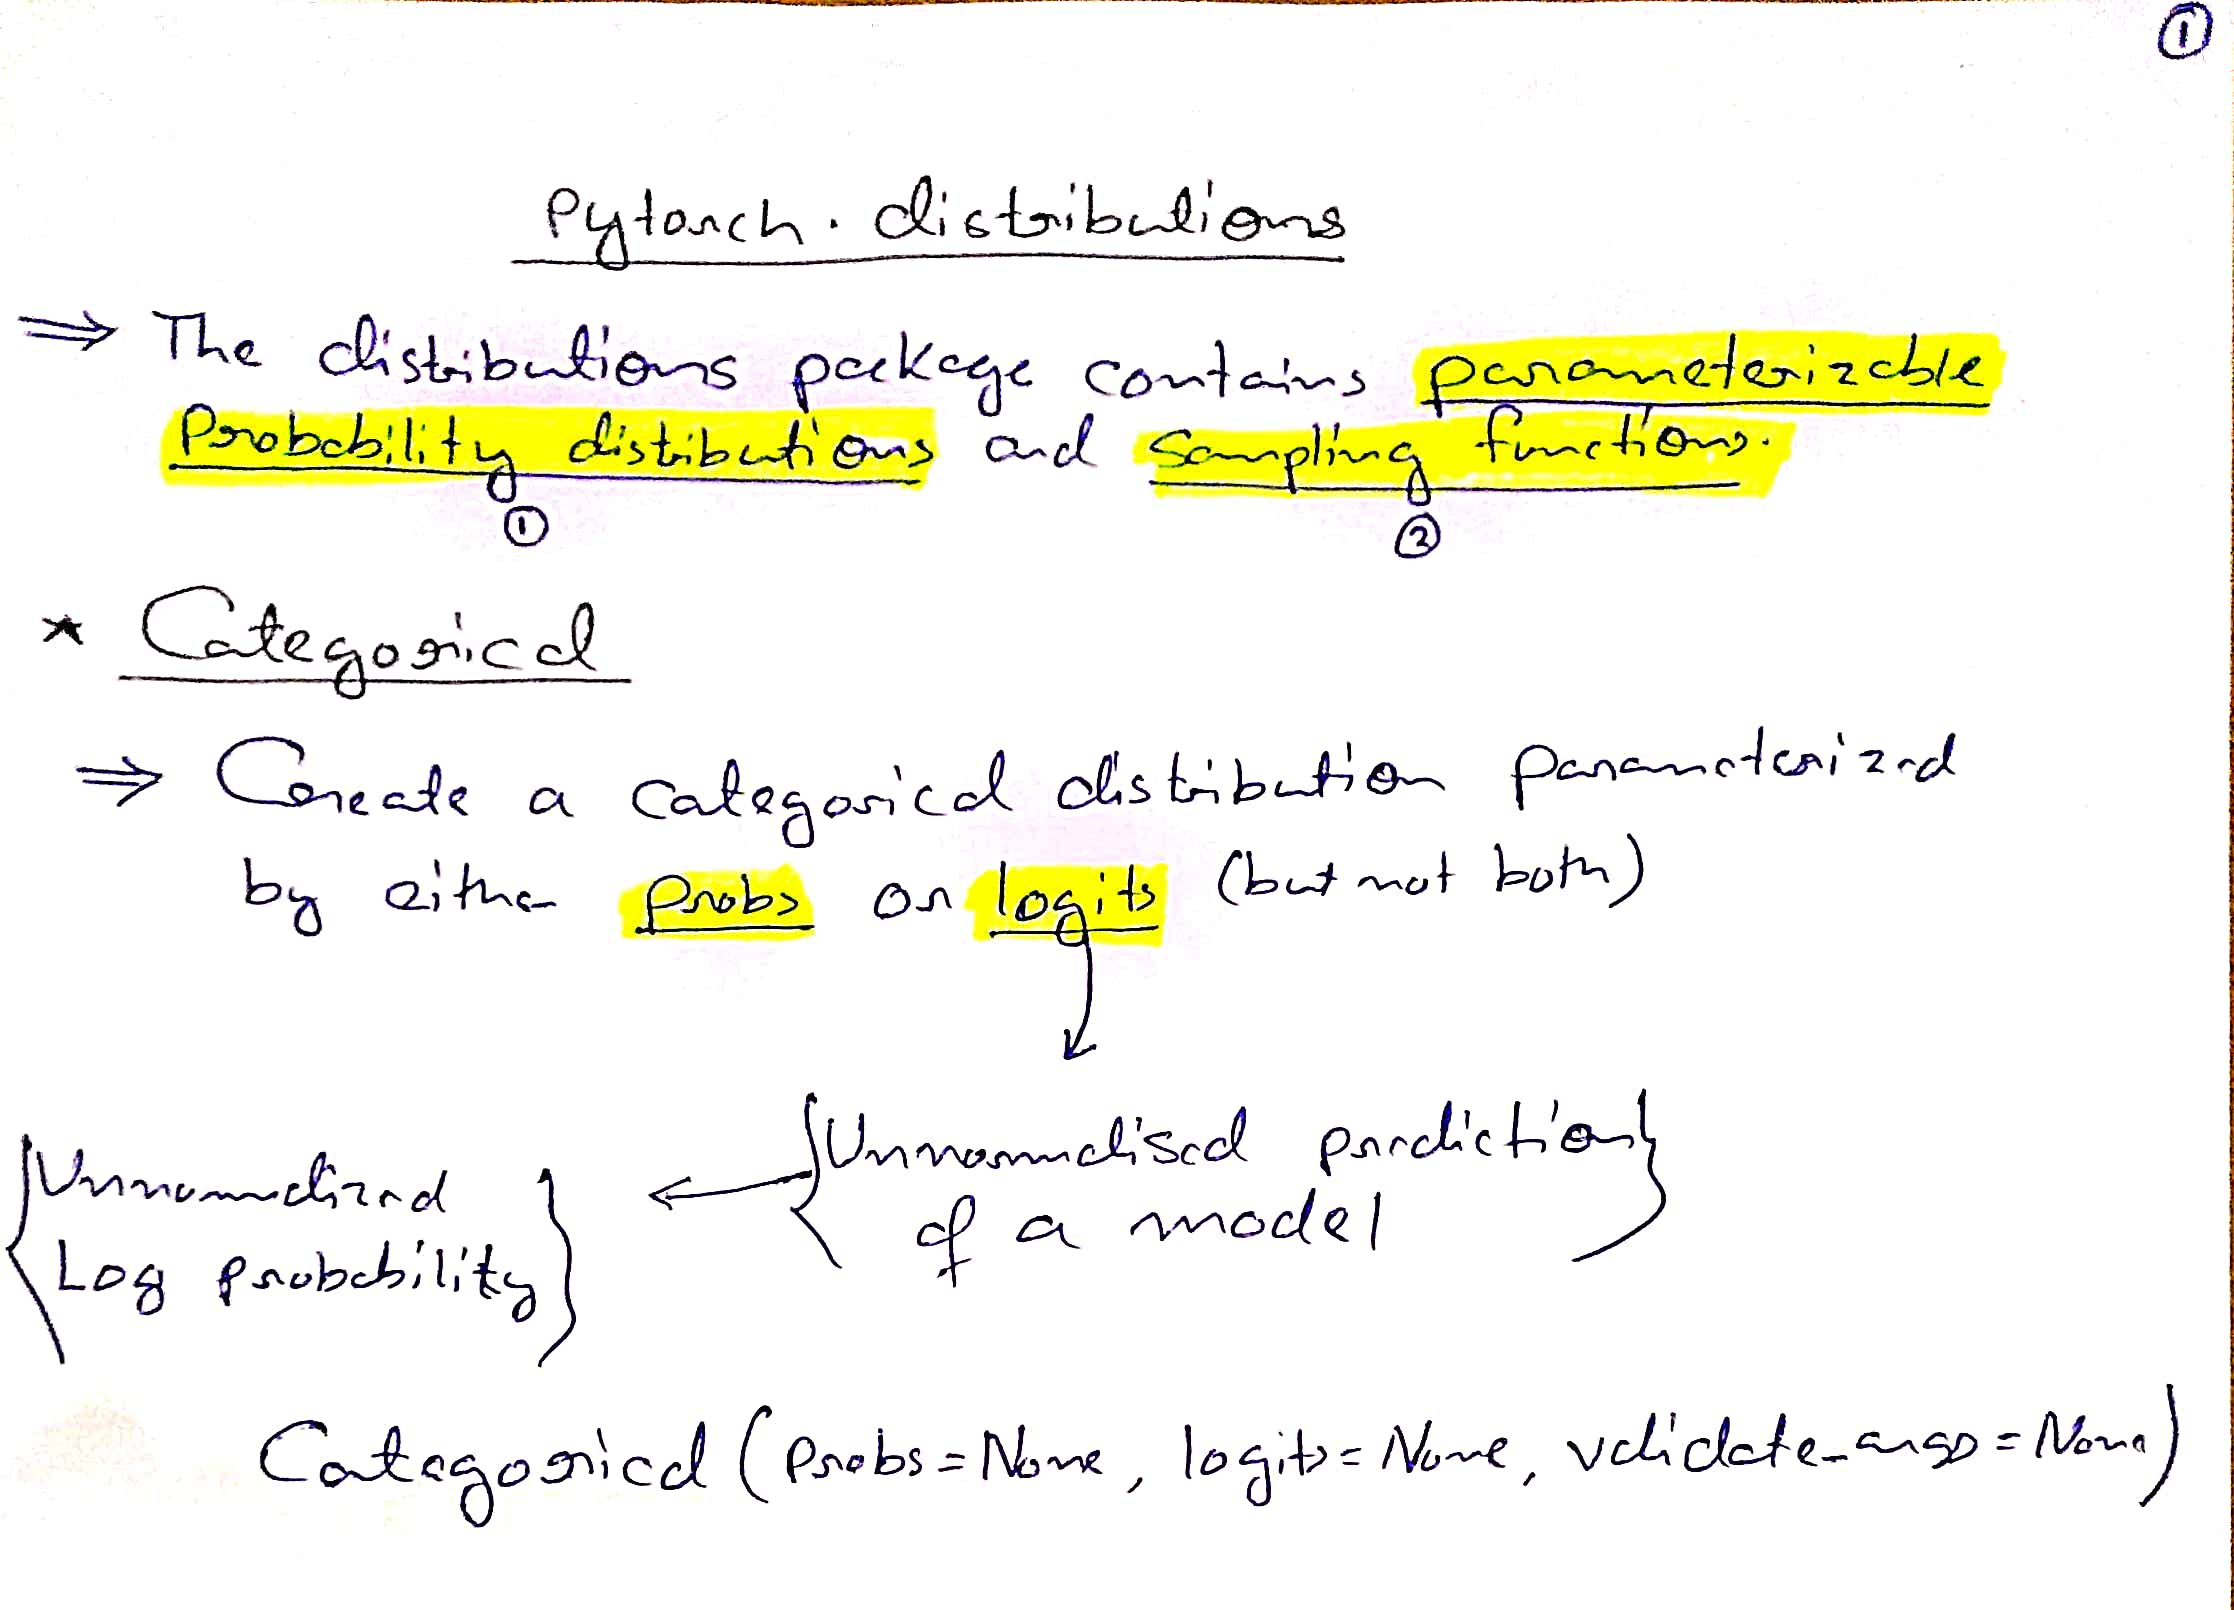 ①
Pytorch. distributions
⇒ The distributions package contains parameterizable
Probability distibutions and Sampling functions.
① ②
* Categorical
⇒ Create a categorical distribution parameterized
by either Probs or logits (but not both)
{Unnormalised prediction}
of a model
{Unnormalized
Log probability}
Categorical (Probs=None, logits=None, validate_args=None)